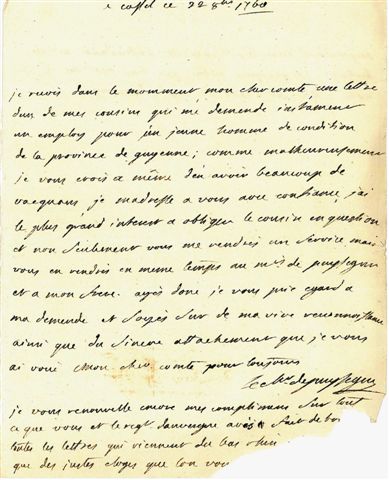 a cassel ce 22 8bre 1760
je recois dans le momment mon cher comte une lettre
dun de mes cousins qui me demende instament
un employ pour un jeune homme de condition
de la province de guyenne; comme malheureusement
je vous crois a même d'en avoir beaucoup de
vacquans je madresse a vous avec confiance, j'ai
le plus grand interest a obliger le cousin en question
et non seulement vous me rendrés un service mais
vous en rendrés en meme temps au mis de puysegur
et a mon frere. ayés donc je vous prie egard a
ma demende et soyés sur de ma vive reconnoissance
ainsi que du sincere attachement que je vous
ai voué mon cher comte pour toujours
le Mis de puysegur
je vous renouvelle encore mes complimens sur tout
ce que vous et le regt dauvergne avés fait de
toutes les lettres qui viennent du bas rhin
que des justes eloges que lon vous